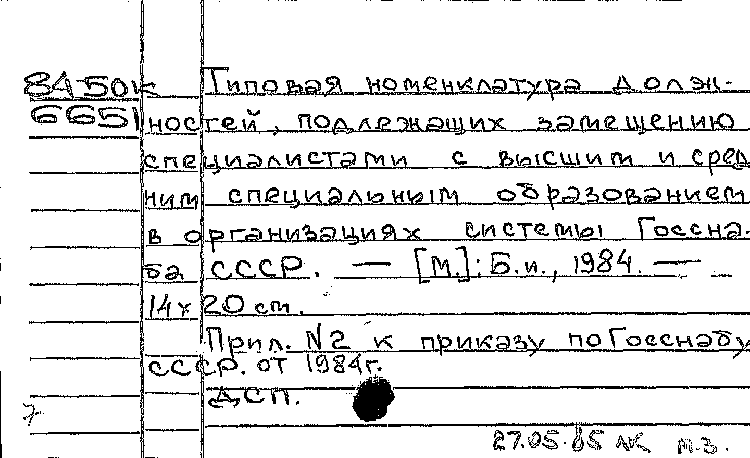 84-50к Типовая номенклатура долж-
6651 ностей, подлежащих замещению
специалистами с высшим и сред
ним специальным образованием
в организациях системы Госсна-
ба СССР. — [М.]: Б.и., 1984. — —
14х20 см.
Прил. N2 к приказу по Госснабу
СССР. от 1984г.
ДСП.
27.05.85